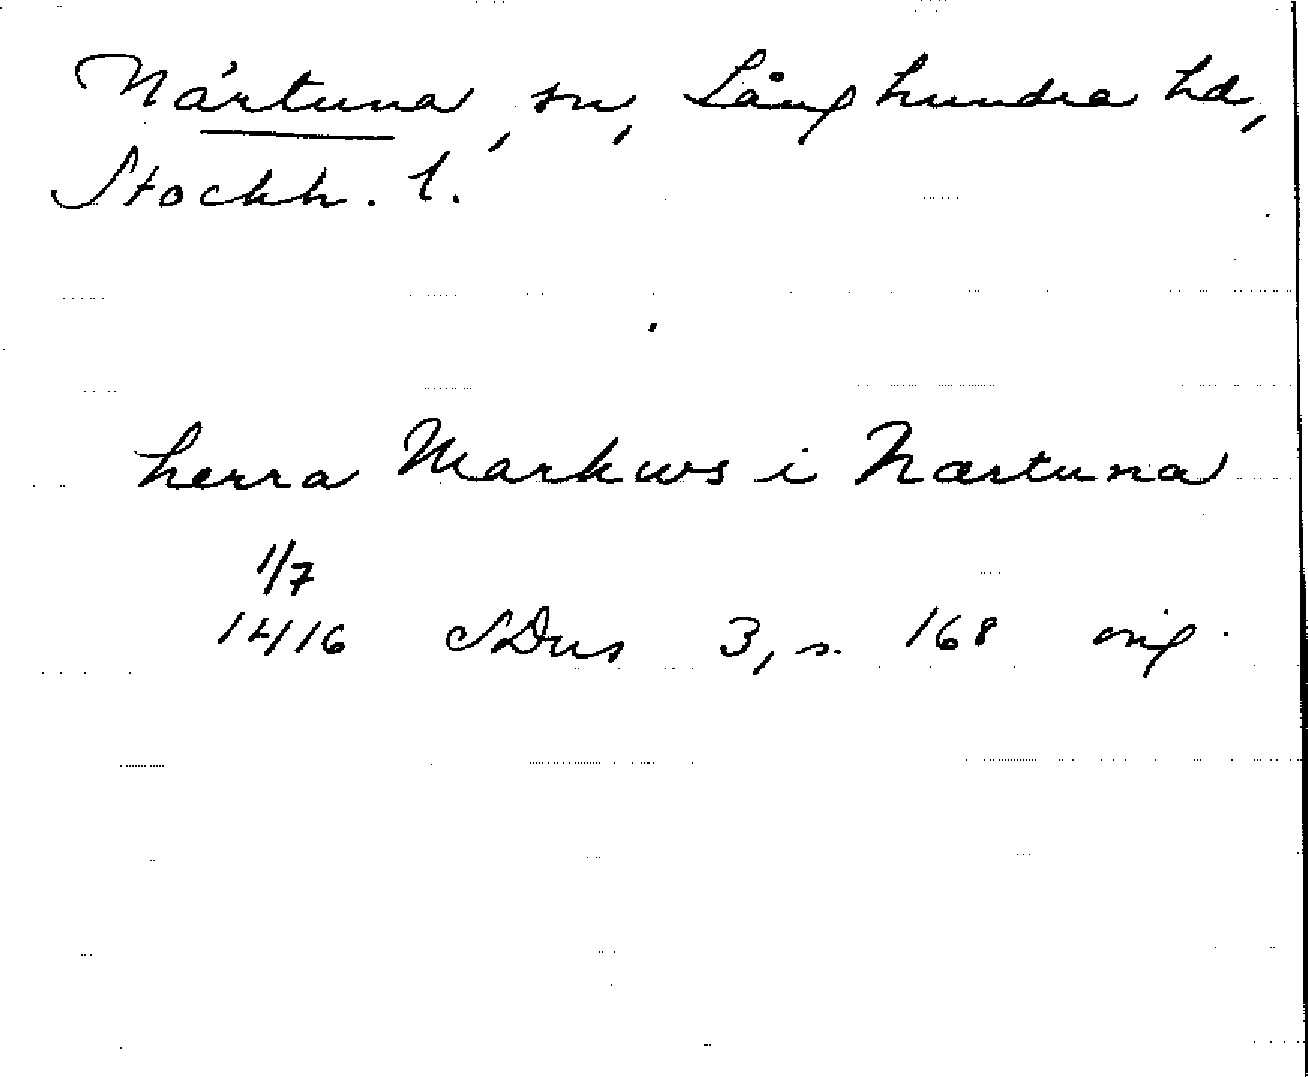 Närtuna, sn, Långhundra hd,
Stockh. l.
herra Markws i Nærtuna
1/7
1416 SDns 3, s. 168 orig.